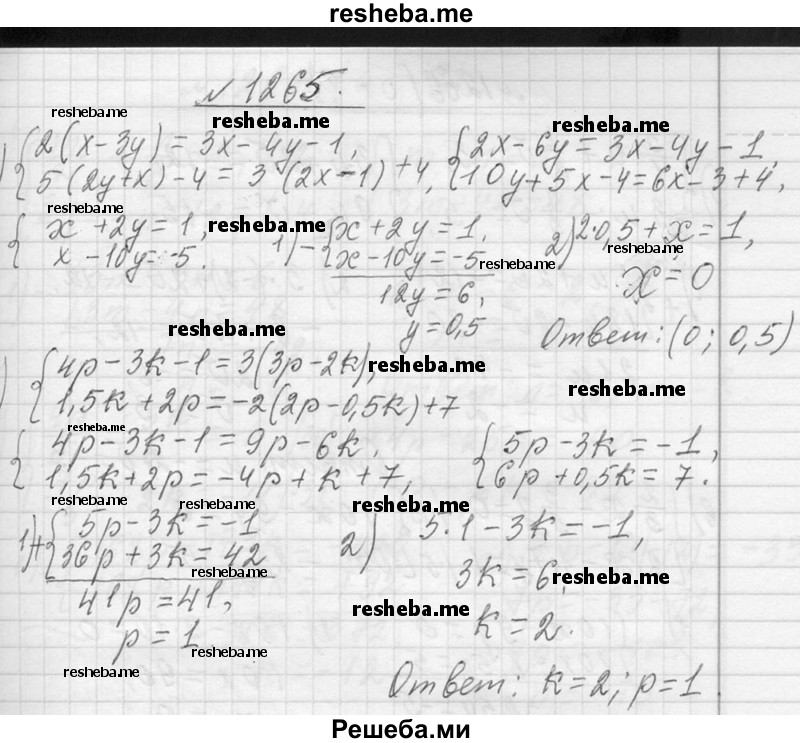 resheba.me
№ 1265.
resheba.me resheba.me resheba.me
) { 2(x-3y) = 3x-4y-1, { 2x-6y = 3x-4y-1,
5(2y+x)-4 = 3(2x-1)+4, 10y+5x-4 = 6x-3+4,
resheba.me
{ x+2y = 1, resheba.me 1) - { x+2y = 1, 2) 2·0,5+x = 1,
x-10y = -5. x-10y = -5 resheba.me resheba.me
12y = 6, x = 0
resheba.me y = 0,5 Ответ: (0; 0,5)
) { 4p-3k-1 = 3(3p-2k), resheba.me
1,5k+2p = -2(2p-0,5k)+7 resheba.me
resheba.me
{ 4p-3k-1 = 9p-6k, { 5p-3k = -1,
1,5k+2p = -4p+k+7, 6p+0,5k = 7.
resheba.me resheba.me resheba.me
1) + { 5p-3k = -1 2) 5·1-3k = -1,
36p+3k = 42 3k = 6, resheba.me
resheba.me
41p = 41, resheba.me k = 2.
p = 1 resheba.me
resheba.me Ответ: k=2; p=1.
Решеба.ми